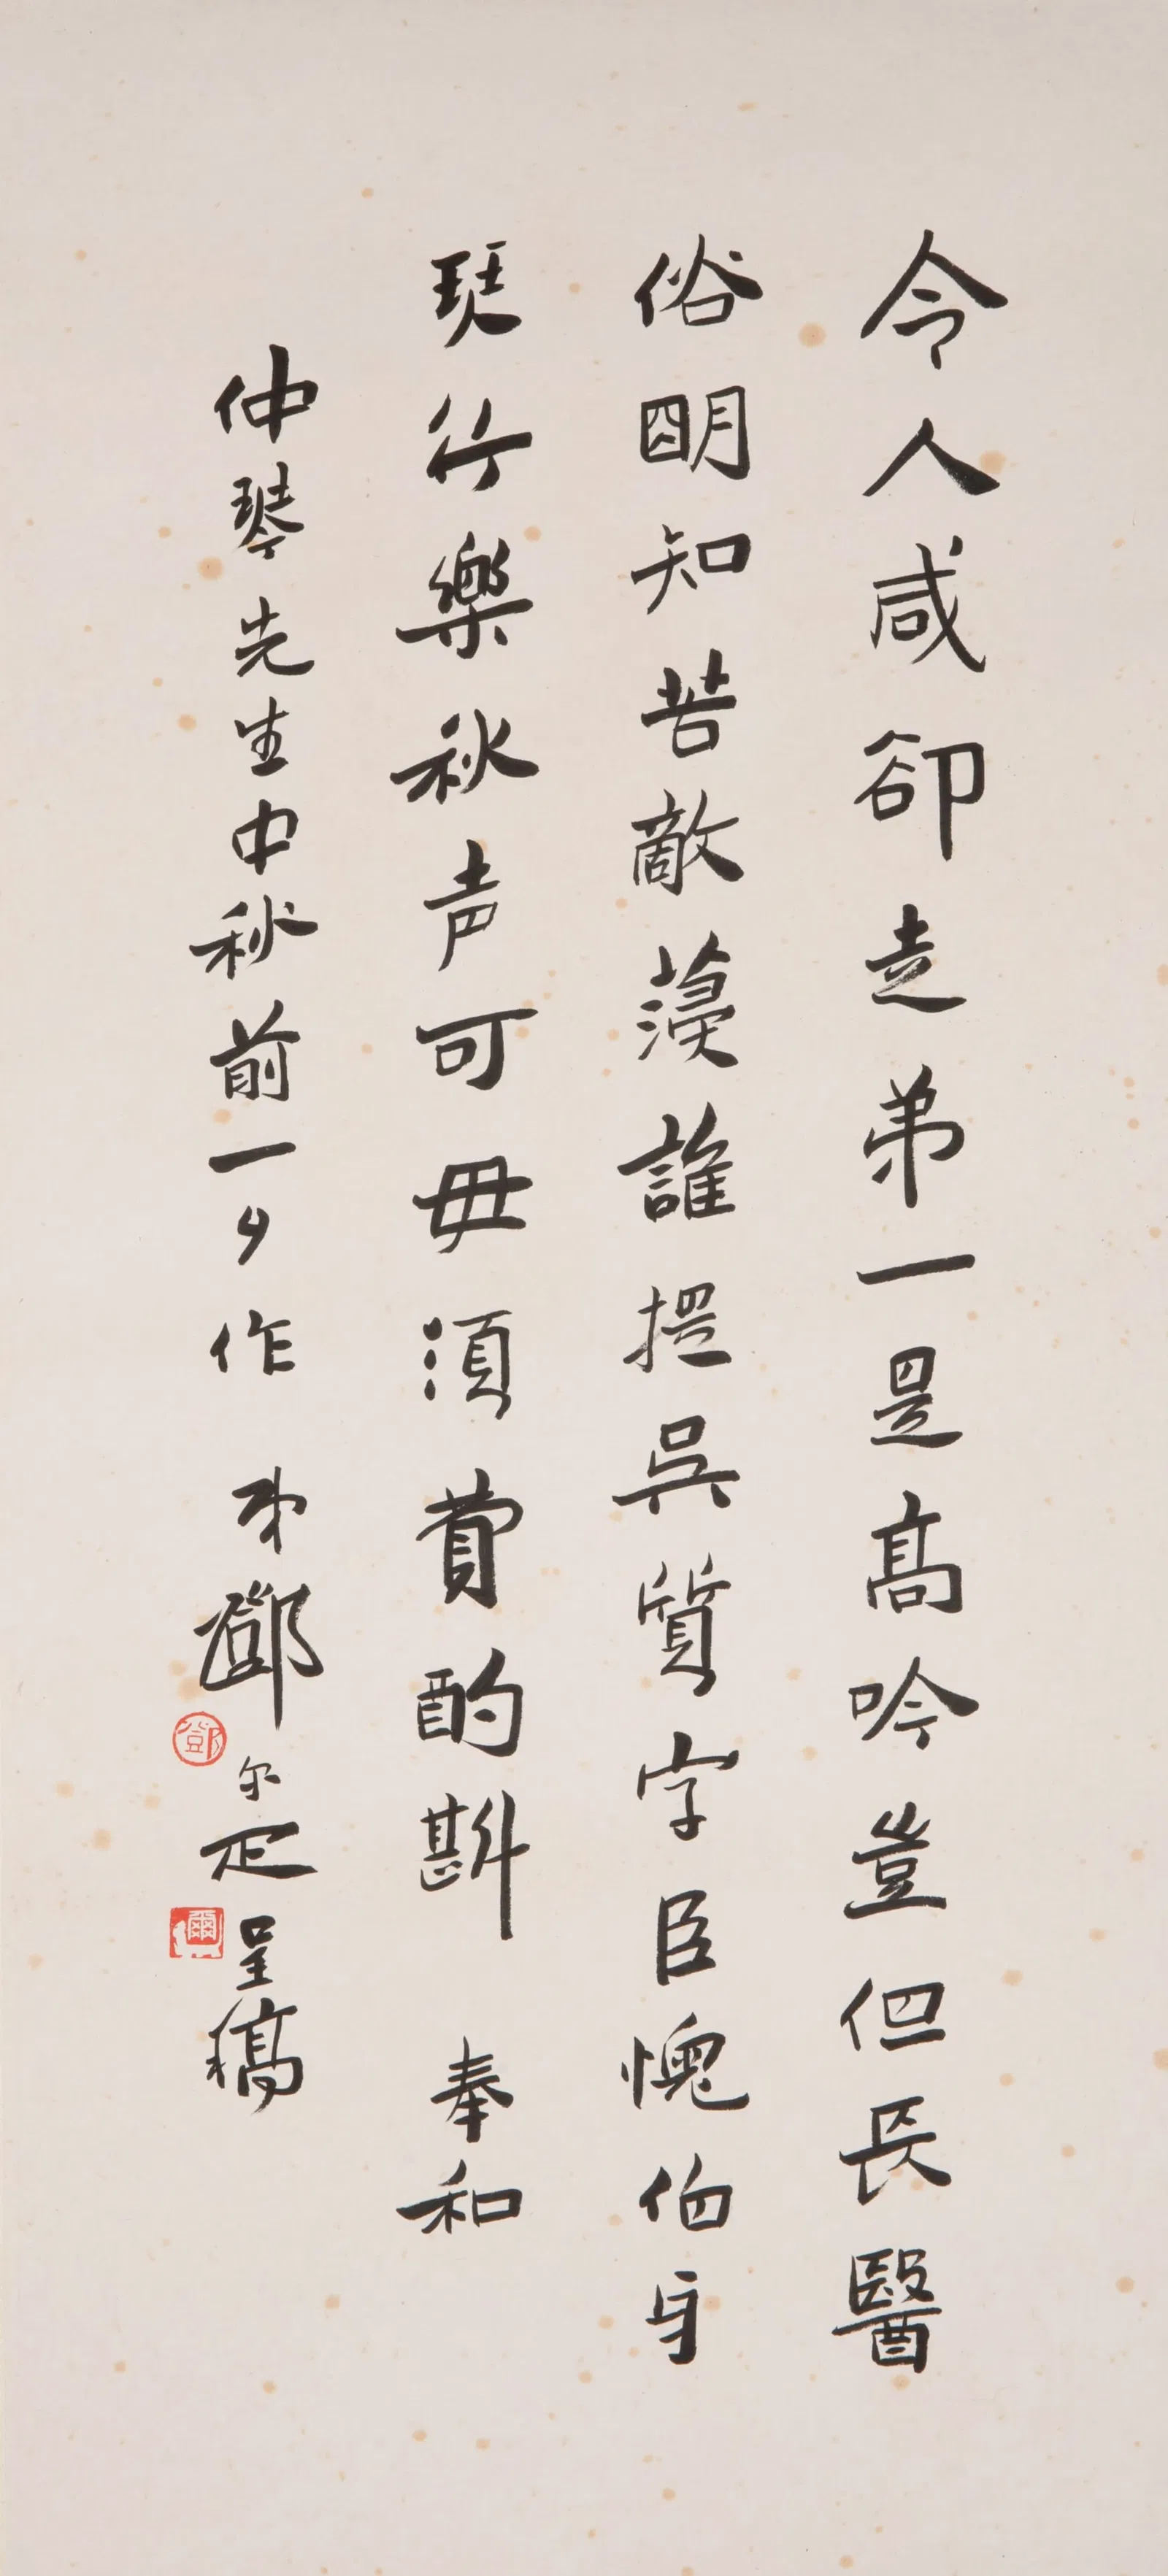 令人咸卻走弟一是高吟豈但長醫
俗朙知苦敵薓誰提吳質字臣愧伯牙
珡竹樂秋声可毋須費酌斟 奉和
仲琴先生中秋前一夕作 弟鄧尔疋呈稿
鄧